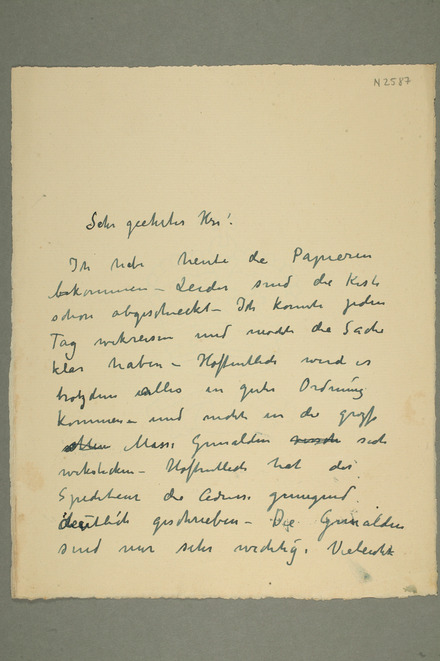 N 2587
Sehr geehrter Herr!
Ich habe heute die Papieren
bekommen – Leider sind die Kiste
schon abgeschieckt – Ich konnte jeden
Tag und mochte die Sache
klar haben – Hoffentlich wird es
trotzdem alles in gute Ordnung
kommen – und nicht in der
Masse Gemälden sich
– Hoffentlich hat der
Spediteur die Adresse genügend
deutlich geschrieben – Die Gemälden
sind mir sehr wichtig. Vieleicht